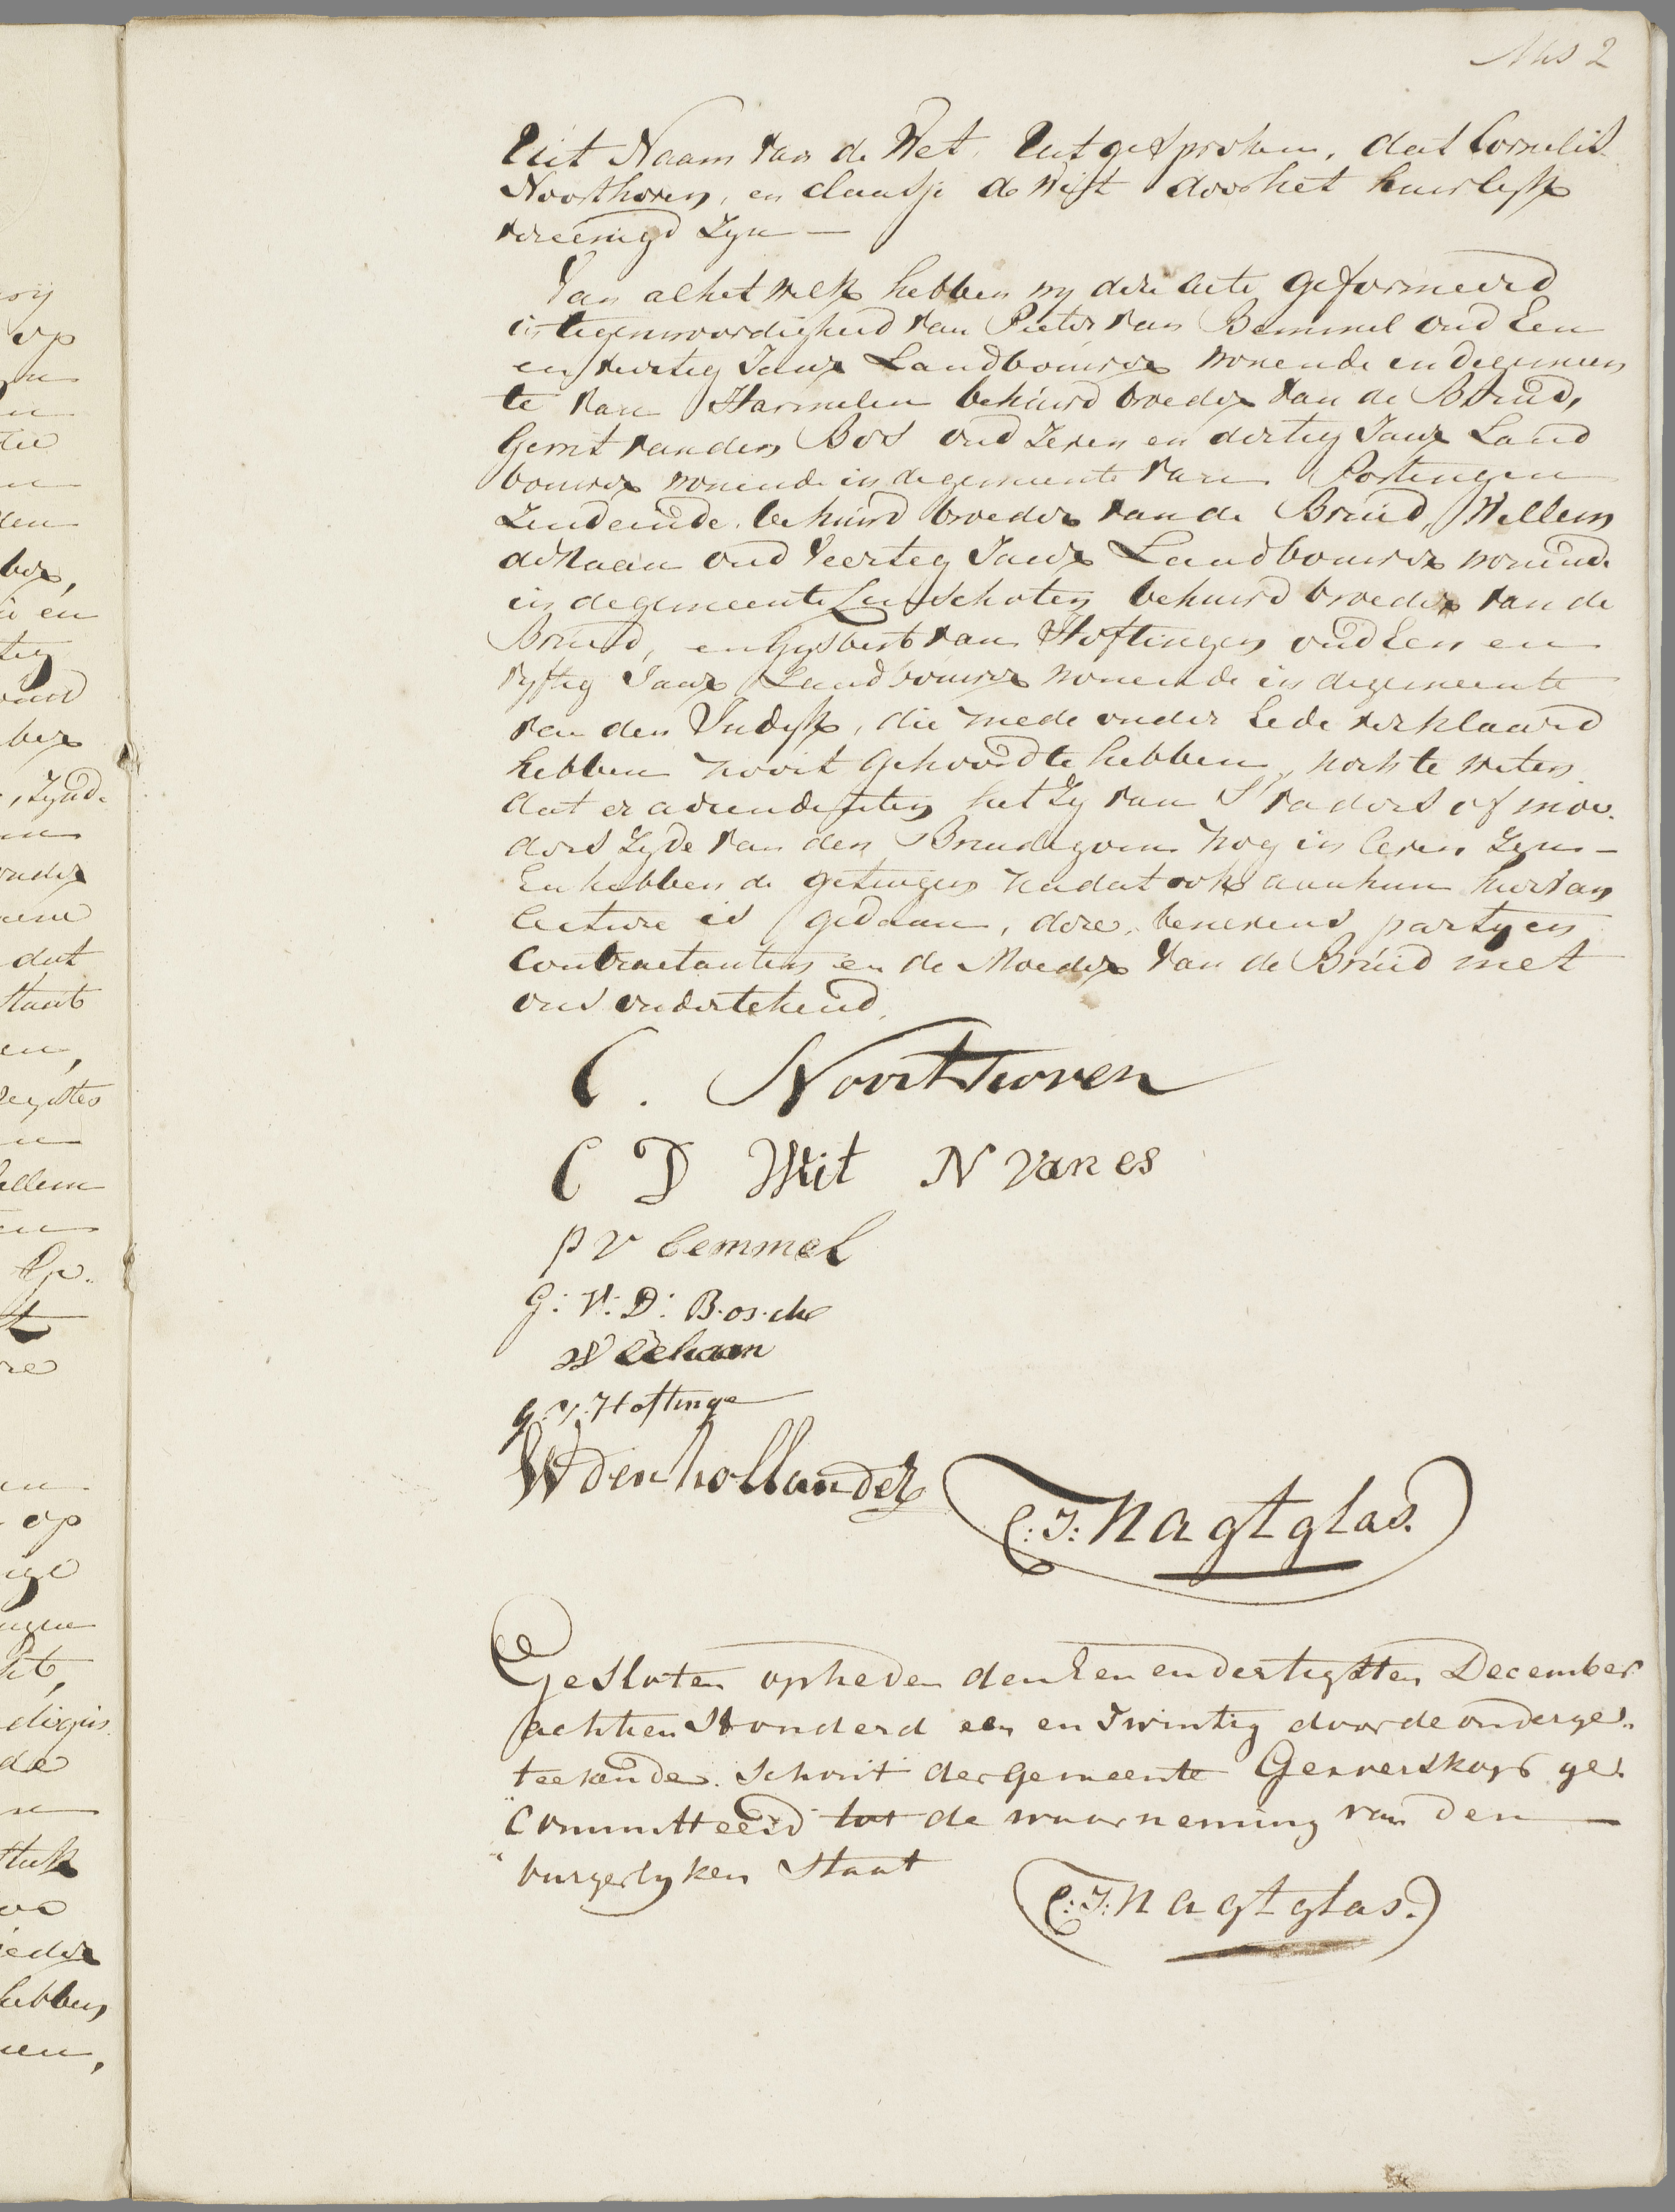 Uit Naam van de Wet, Uitgesproken, dat Cornelis
Noorthoven, en Claasje de Wit door het huwelijk
vereenigd Zyn —
Van al het welk hebben wy dese acte geformeerd
in tegenwoordigheid van Pieter van Bemmel oud Een
en veertig Jaar Landbouwer wonende in de gemeen
te van Harmelen behuwd broeder van de Bruid,
Gerrit van den Bos oud Zeven en dertig Jaar Land
bouwer wonende in de gemeente van
behuwd broeder van de Bruid, Willem
de Haan oud Veertig Jaar Landbouwer wonende
in de gemeente Linschoten behuwd broeder van de
Bruid, en Gysbert van Hoftingen oud Een en
vyftig Jaar Landbouwer wonende in de gemeente
van den Indyk, die mede onder Eede verklaard
hebben nooit gehoord te hebben, noch te weten
dat er ascendenten het Zy van S vaders of moe.
ders Zyde van den Bruidegom nog in leven Zyn —
En hebben de getuigen nadat ook aan hun hiervan
lecture is gedaan, dese, benevens partyen
Contractanten en de Moeder van de Bruid met
ons ondertekend.
C. Noorthoven
C D Wit N van es
p v bemmel
G: V: D: B.os.che
W dehaan
g. v. Hoftinge
W den hollander
C: J: Nagtglas.
Gesloten op heden den Een en dertigsten December
achttien Honderd een en Twintig door de onderge„
teekende. Schout der Gemeente Gerverskop ge„
„Committeerd tot de waarneming van den —
„burgerlyken Staat
C: J: Nagtglas.